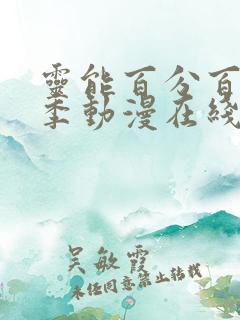 靈能百分百
季動漫在綫
吴敏霞
未任同意禁止轉載